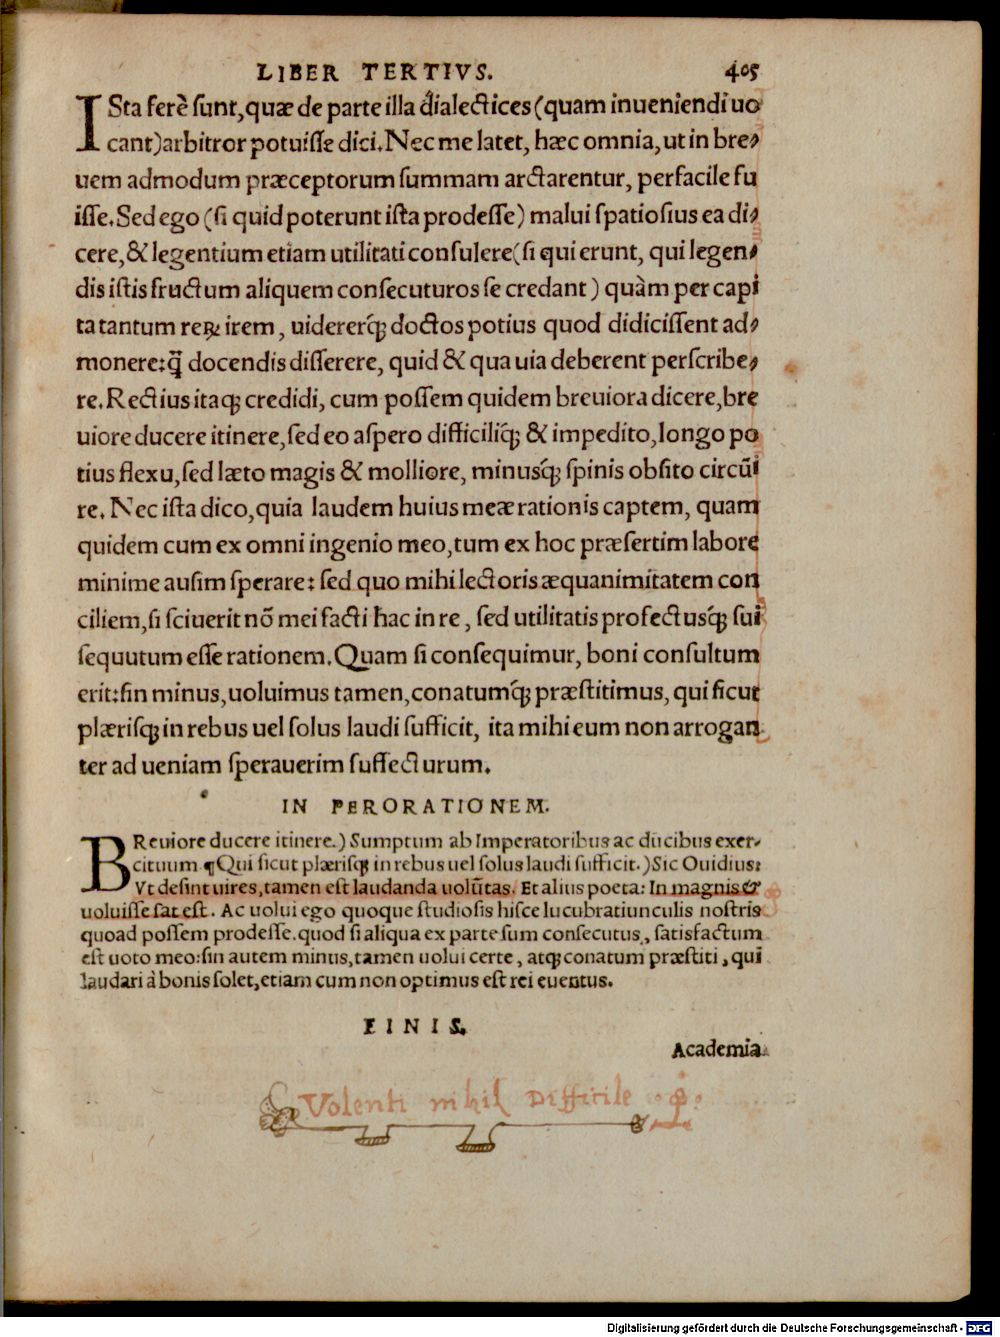 LIBER TERTIVS. 405
ISta ferè sunt, quæ de parte illa dialectices (quam inueniendi uo
cant) arbitror potuisse dici. Nec me latet, hæc omnia, ut in bre⸗
uem admodum præceptorum summam arctarentur, perfacile fu
isse. Sed ego (si quid poterunt ista prodesse) malui spatiosius ea di⸗
cere, & legentium etiam utilitati consulere (si qui erunt, qui legen⸗
dis istis fructum aliquem consecuturos se credant) quàm per capi
ta tantum reꝝ irem, uidererq́ꝫ doctos potius quod didicissent ad⸗
monere: q̃ docendis disserere, quid & qua uia deberent perscribe⸗
re. Rectius itaqꝫ credidi, cum possem quidem breuiora dicere, bre
uiore ducere itinere, sed eo aspero difficiliq́ꝫ & impedito, longo po
tius flexu, sed læto magis & molliore, minusq́ꝫ spinis obsito circũi
re. Nec ista dico, quia laudem huius meæ rationis captem, quam
quidem cum ex omni ingenio meo, tum ex hoc præsertim labore
minime ausim sperare: sed quo mihi lectoris æquanimitatem con
ciliem, si sciuerit nõ mei facti hac in re, sed utilitatis profectusq́ꝫ sui
sequutum esse rationem. Quam si consequimur, boni consultum
erit: sin minus, uoluimus tamen, conatumq́ꝫ præstitimus, qui sicut
plærisqꝫ in rebus uel solus laudi sufficit, ita mihi eum non arrogan
ter ad ueniam sperauerim suffecturum.
IN PERORATIONEM.
BReuiore ducere itinere.) Sumptum ab Imperatoribus ac ducibus exer⸗
cituum ¶Qui sicut plærisqꝫ in rebus uel solus laudi sufficit.) Sic Ouidius:
Vt desint uires, tamen est laudanda uolũtas. Et alius poeta: In magnis &
uoluisse sat est. Ac uolui ego quoque studiosis hisce lucubratiunculis nostris
quoad possem prodesse. quod si aliqua ex parte sum consecutus, satisfactum
est uoto meo: sin autem minus, tamen uolui certe, atqꝫ conatum præstiti, qui
laudari à bonis solet, etiam cum non optimus est rei euentus.
FINIS.
Academia
Volenti nihil Difficile
Digitalisierung gefördert durch die Deutsche Forschungsgemeinschaft - DFG